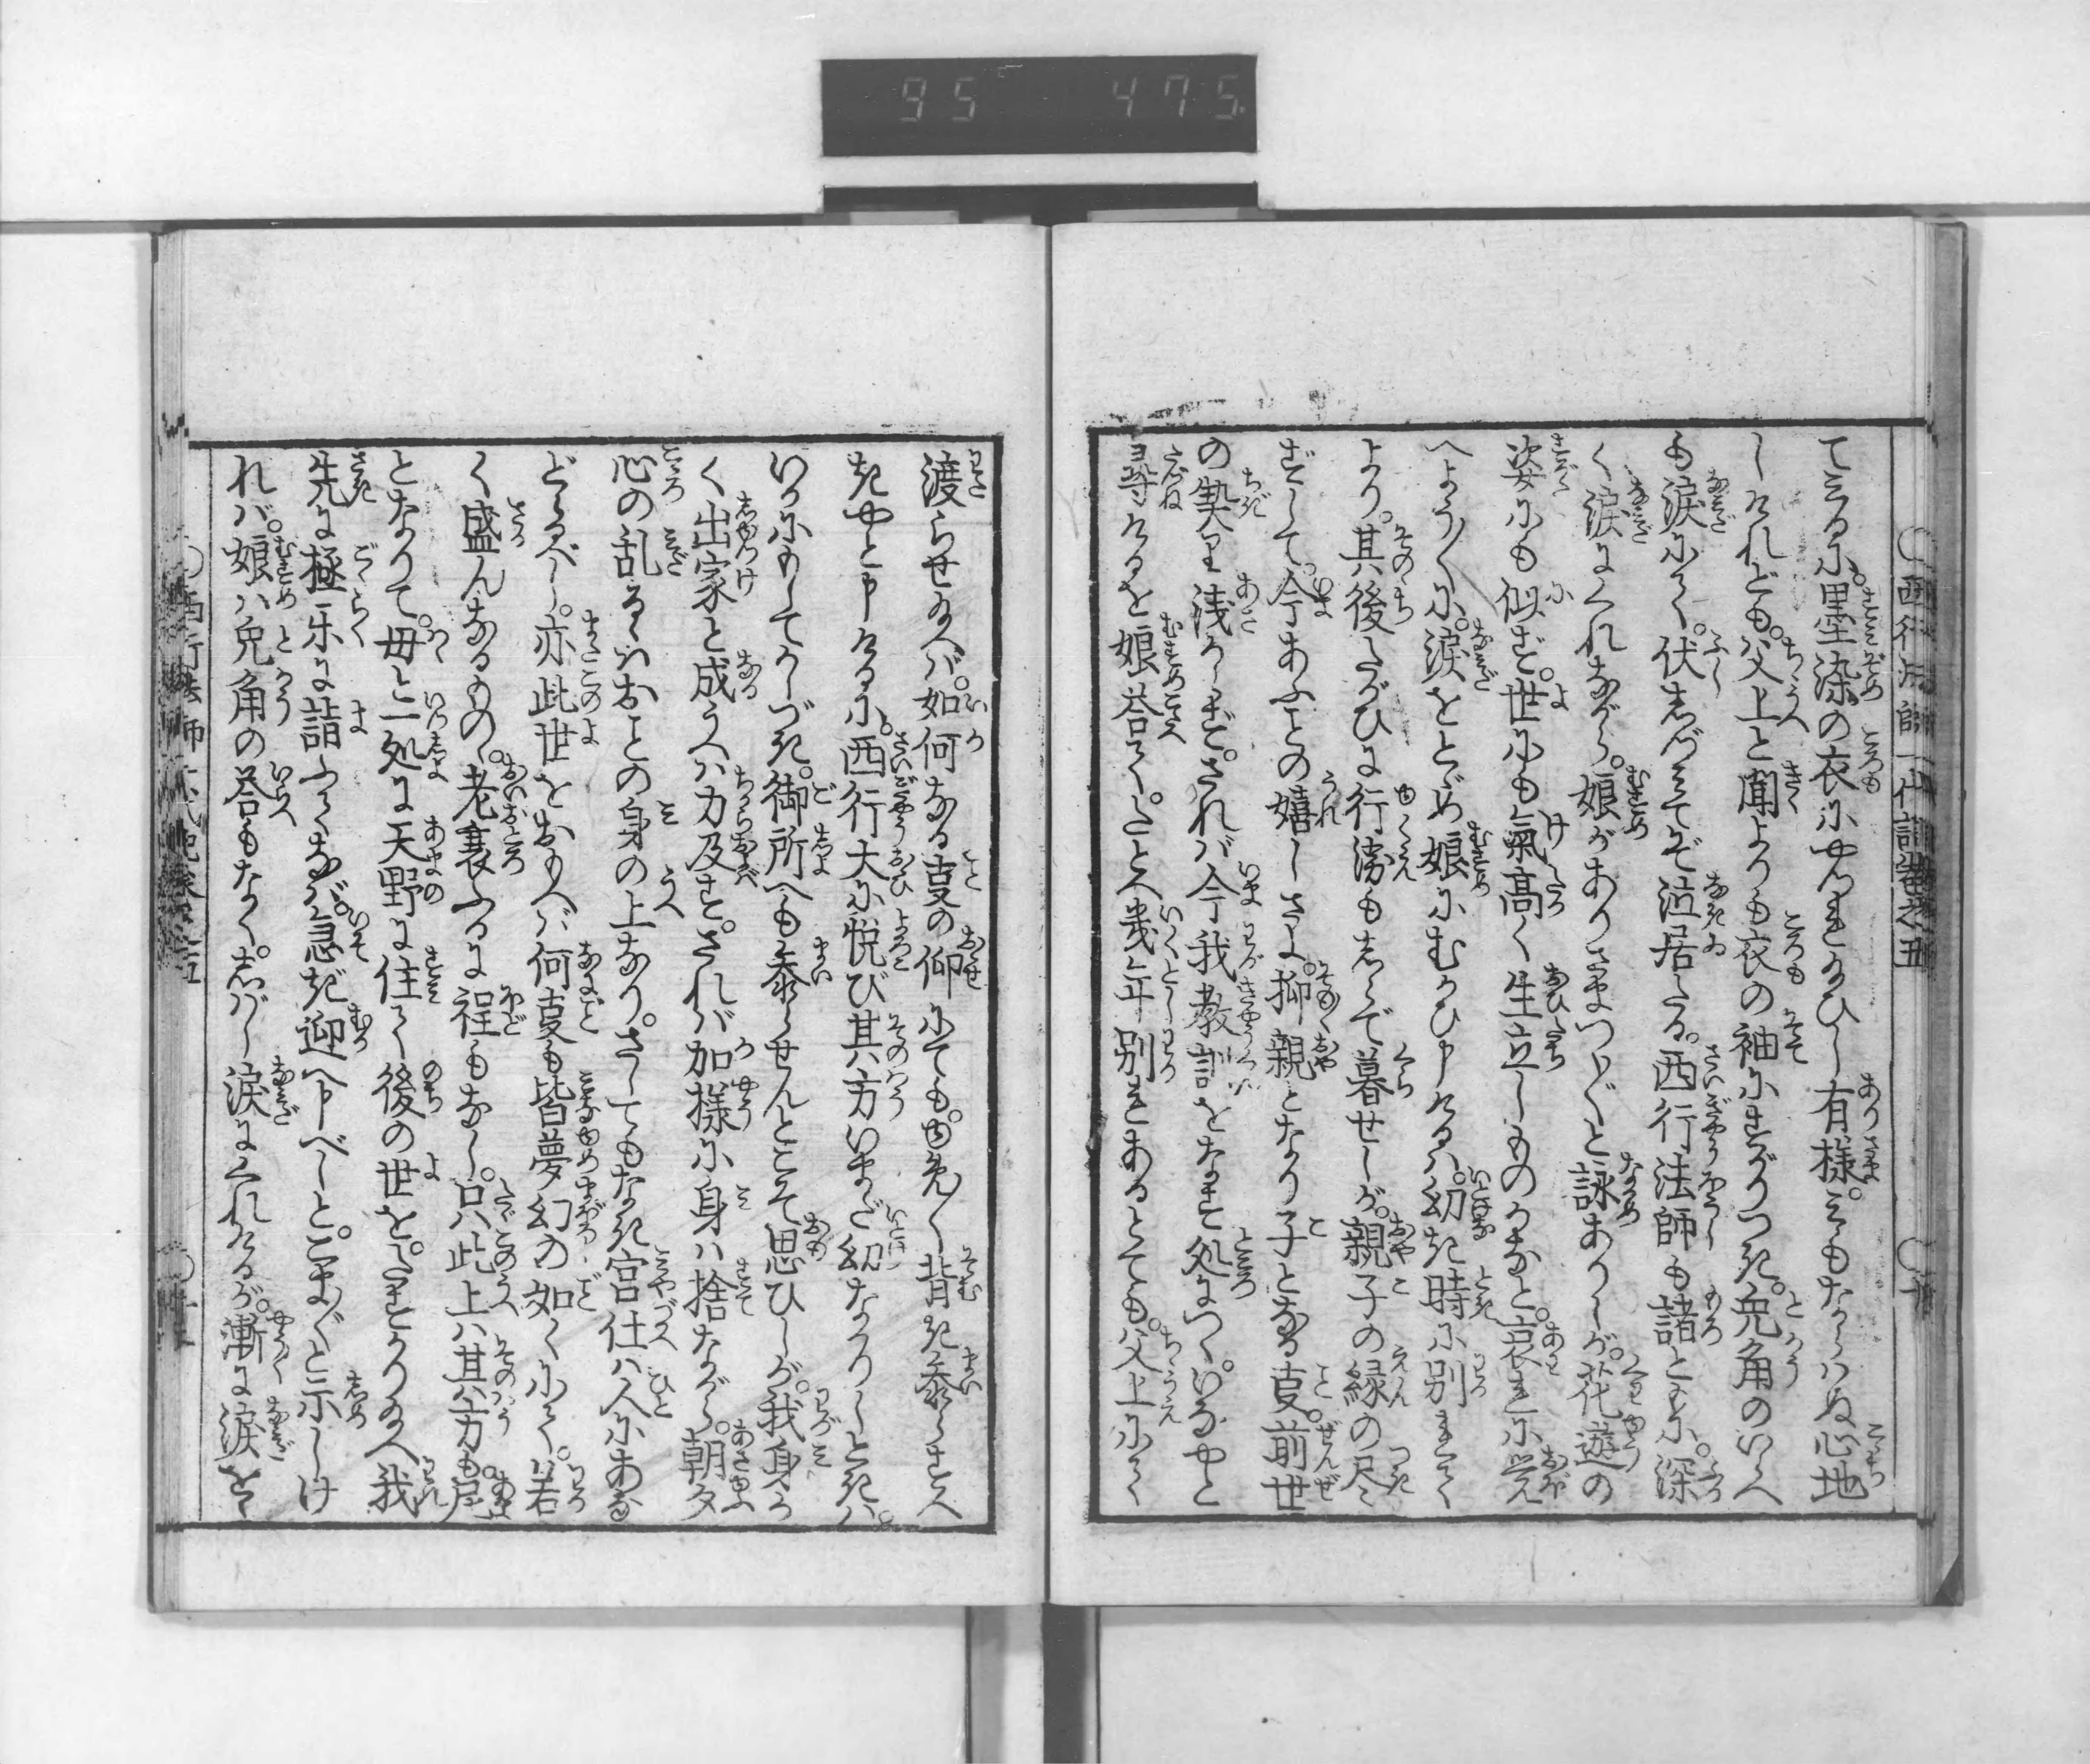 95 475
西行法師一代記巻之五
てみるに。墨染の衣にやつれ給ひし有様。みもならはぬ心地
しけれども。父上と聞よりも衣の袖にすがりつき。兎角のいらへ
も涙にて。伏しづみてぞ泣居たる。西行法師も諸ともに。深
く涙にくれながら。娘がありさまつく〴〵と詠ありしが。花遊の
姿にも似ず。世にも氣高く生立しものかなと。哀れに覚
へやう〳〵に。涙をとゞめ娘にむかひ申けるハ。幼き時に別れて
より。其後たがひに行衛もしらで暮せしが。親子の縁の尽
ずして。今あふことの嬉しさよ。抑親となり子となる事。前世
の契り浅からず。されバ今我教訓をなす処につく。いなやと
尋けるを娘答て。たとへ幾年別れあるとても。父上にて
渡らせ給へバ。如何なる事の仰にても。ゆめ〳〵背き参らすべ
きやと申けるに。西行大に悦び其方いまだ幼なかりしときハ。
いかにもしてかしづき。御所へも参らせんとこそ思ひしが。我身か
く出家と成うへハ力及ず。されバ加様に身ハ捨ながら。朝夕
心の乱るゝハおことの身の上なり。さしてもなき宮仕ハ人にあな
どるべし。亦此世をおもへバ何事も皆夢幻の如くにて。若
く盛んなるもの。老衰ふるに程もなし。只此上ハ其方も尼
となりて。母と一処に天野に住て後の世を。たすかり給へ我
先に極楽に詣ふでなバ。急ぎ迎へ申べしと。こま〴〵と示しけ
れバ。娘ハ兎角の答もなく。しばし涙にくれけるが。漸に涙をを
西行法師一代記巻之五